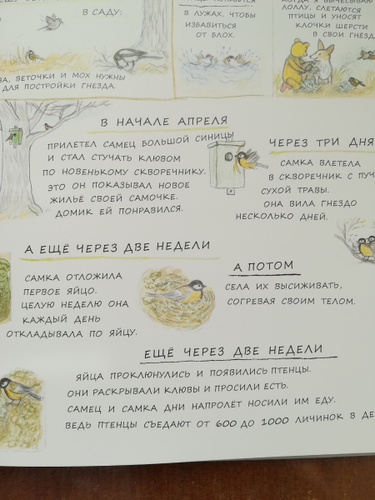 В САДУ:
ВЕТОЧКИ И МОХ НУЖНЫ
ДЛЯ ПОСТРОЙКИ ГНЕЗДА.
В ЛУЖАХ, ЧТОБЫ
ИЗБАВИТЬСЯ
ОТ БЛОХ.
ЛОЛЛУ, СЛЕТАЮТСЯ
ПТИЦЫ И УНОСЯТ
КЛОЧКИ ШЕРСТИ
В СВОИ ГНЁЗДА
В НАЧАЛЕ АПРЕЛЯ
ПРИЛЕТЕЛ САМЕЦ БОЛЬШОЙ СИНИЦЫ
И СТАЛ СТУЧАТЬ КЛЮВОМ
ПО НОВЕНЬКОМУ СКВОРЕЧНИКУ.
ЭТО ОН ПОКАЗЫВАЛ НОВОЕ
ЖИЛЬЁ СВОЕЙ САМОЧКЕ.
ДОМИК ЕЙ ПОНРАВИЛСЯ.
ЧЕРЕЗ ТРИ ДНЯ
САМКА ВЛЕТЕЛА
В СКВОРЕЧНИК С ПУЧ
СУХОЙ ТРАВЫ.
ОНА ВИЛА ГНЕЗДО
НЕСКОЛЬКО ДНЕЙ.
А ЕЩЁ ЧЕРЕЗ ДВЕ НЕДЕЛИ
САМКА ОТЛОЖИЛА
ПЕРВОЕ ЯЙЦО.
ЦЕЛУЮ НЕДЕЛЮ ОНА
КАЖДЫЙ ДЕНЬ
ОТКЛАДЫВАЛА ПО ЯЙЦУ.
А ПОТОМ
СЕЛА ИХ ВЫСИЖИВАТЬ,
СОГРЕВАЯ СВОИМ ТЕЛОМ.
ЕЩЁ ЧЕРЕЗ ДВЕ НЕДЕЛИ
ЯЙЦА ПРОКЛЮНУЛИСЬ И ПОЯВИЛИСЬ ПТЕНЦЫ.
ОНИ РАСКРЫВАЛИ КЛЮВЫ И ПРОСИЛИ ЕСТЬ.
САМЕЦ И САМКА ДНИ НАПРОЛЁТ НОСИЛИ ИМ ЕДУ.
ВЕДЬ ПТЕНЦЫ СЪЕДАЮТ ОТ 600 ДО 1000 ЛИЧИНОК В ДЕ